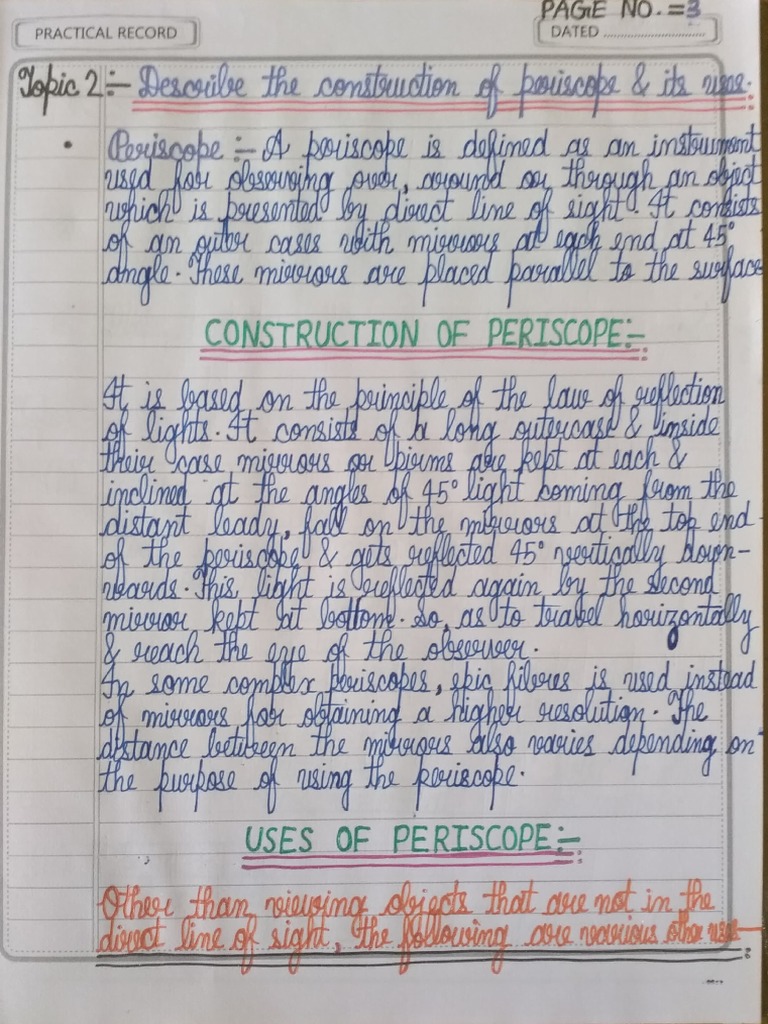 PAGE NO. = 3
PRACTICAL RECORD
DATED
Topic 2:- Describe the construction of periscope & its uses.
• Periscope :- A periscope is defined as an instrument
used for observing over, around or through an object
which is presented by direct line of sight. It consists
of an outer cases with mirrors at each end at 45°
angle. These mirrors are placed parallel to the surface
CONSTRUCTION OF PERISCOPE:-
It is based on the principle of the law of reflection
of lights. It consists of a long outercase & inside
their case mirrors or pirms are kept at each &
inclined at the angles of 45° light coming from the
distant leady, fall on the mirrors at the top end
of the periscope & gets reflected 45° vertically down-
wards. This light is reflected again by the second
mirror kept at bottom. So, as to travel horizontally
& reach the eye of the observer.
In some complex periscopes, epic fibres is used instead
of mirrors for obtaining a higher resolution. The
distance between the mirrors also varies depending on
the purpose of using the periscope.
USES OF PERISCOPE:-
Other than viewing objects that are not in the
direct line of sight, the following are various other uses